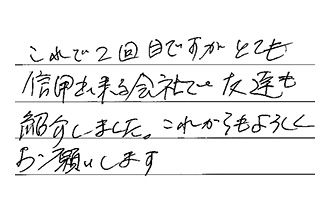 これで2回目ですがとても
信用出来る会社で友達も
紹介しました。これからもよろしく
お願いします